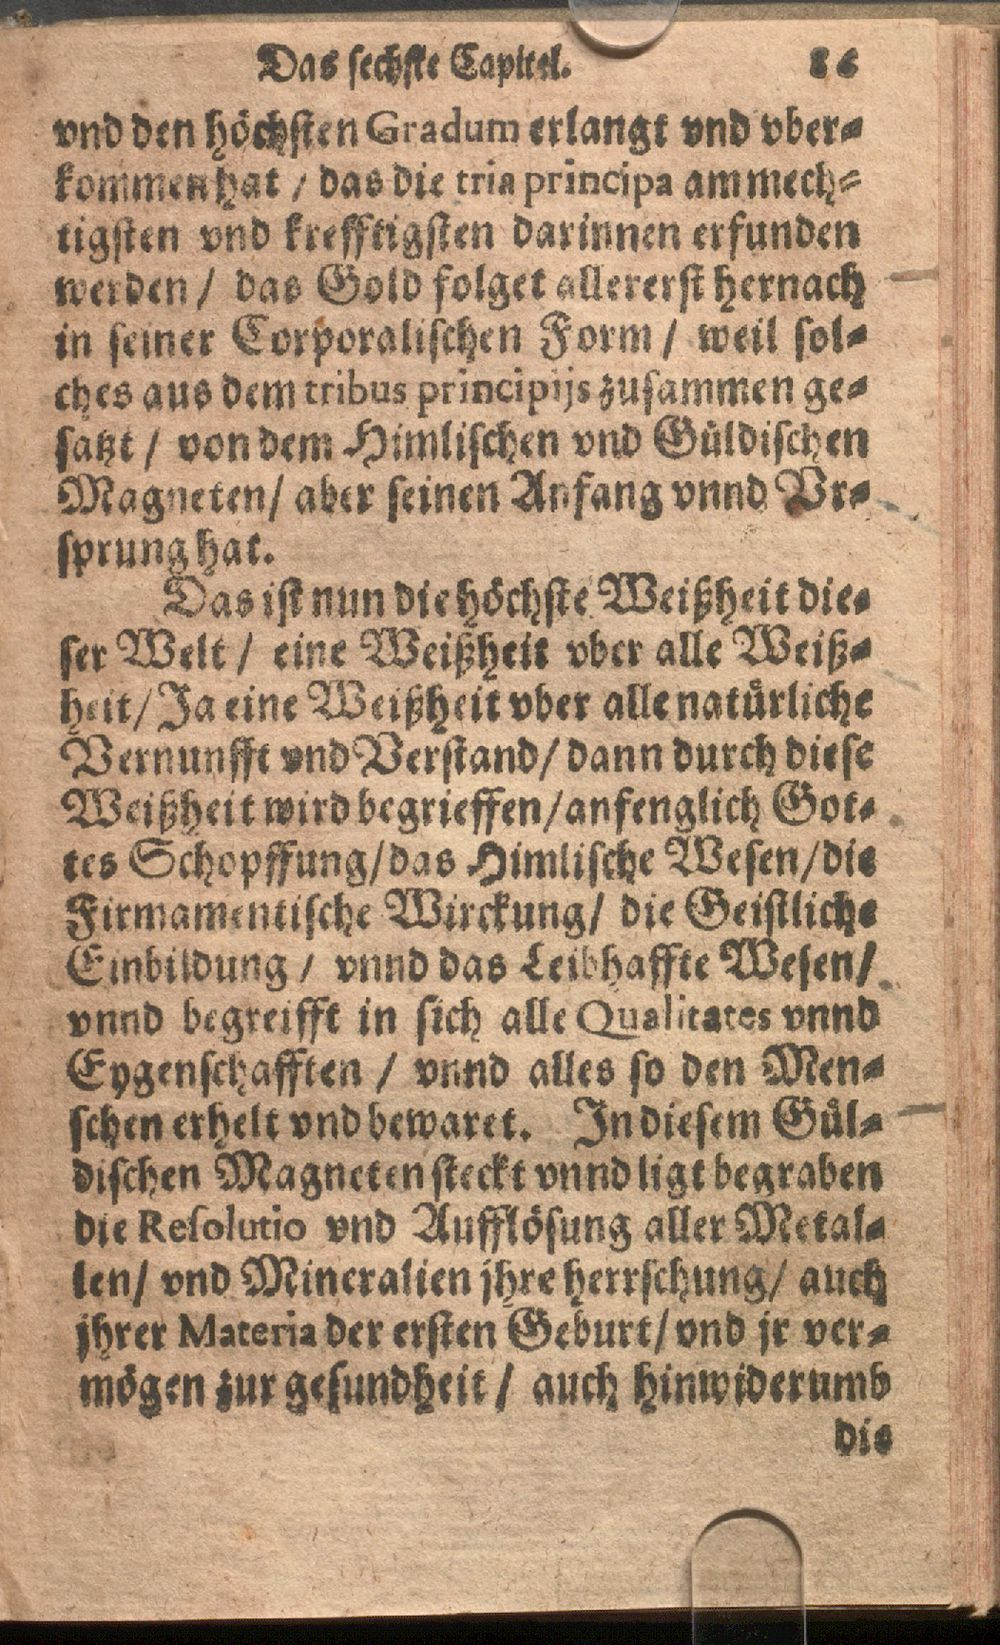 Das sechste Capitel. 86
vnd den höchsten Gradum erlangt vnd vber-
kommen hat / das die tria principa am mech-
tigsten vnd krefftigsten darinnen erfunden
werden / das Gold folget allererst hernach
in seiner Corporalischen Form / weil sol-
ches aus dem tribus principijs zusammen ge-
satzt / von dem Himlischen vnd Güldischen
Magneten / aber seinen Anfang vnnd Vr-
sprung hat.
Das ist nun die höchste Weißheit die-
ser Welt / eine Weißheit vber alle Weiß-
heit / Ja eine Weißheit vber alle natürliche
Vernunfft vnd Verstand / dann durch diese
Weißheit wird begrieffen / anfenglich Got-
tes Schopffung / das Himlische Wesen / die
Firmamentische Wirckung / die Geistliche
Einbildung / vnnd das Leibhaffte Wesen /
vnnd begreifft in sich alle Qualitates vnnd
Eygenschafften / vnnd alles so den Men-
schen erhelt vnd bewaret. In diesem Gül-
dischen Magneten steckt vnnd ligt begraben
die Resolutio vnd Aufflösung aller Metal-
len / vnd Mineralien jhre herrschung / auch
jhrer Materia der ersten Geburt / vnd jr ver-
mögen zur gesundheit / auch hinwiderumb
die